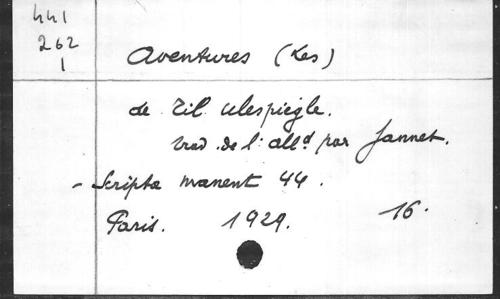 441
262
1
Aventures (Les)
de Til Ulespiègle.
trad. de l'all^d par Jannet.
- Scripta manent 44.
Paris. 1929. 16.